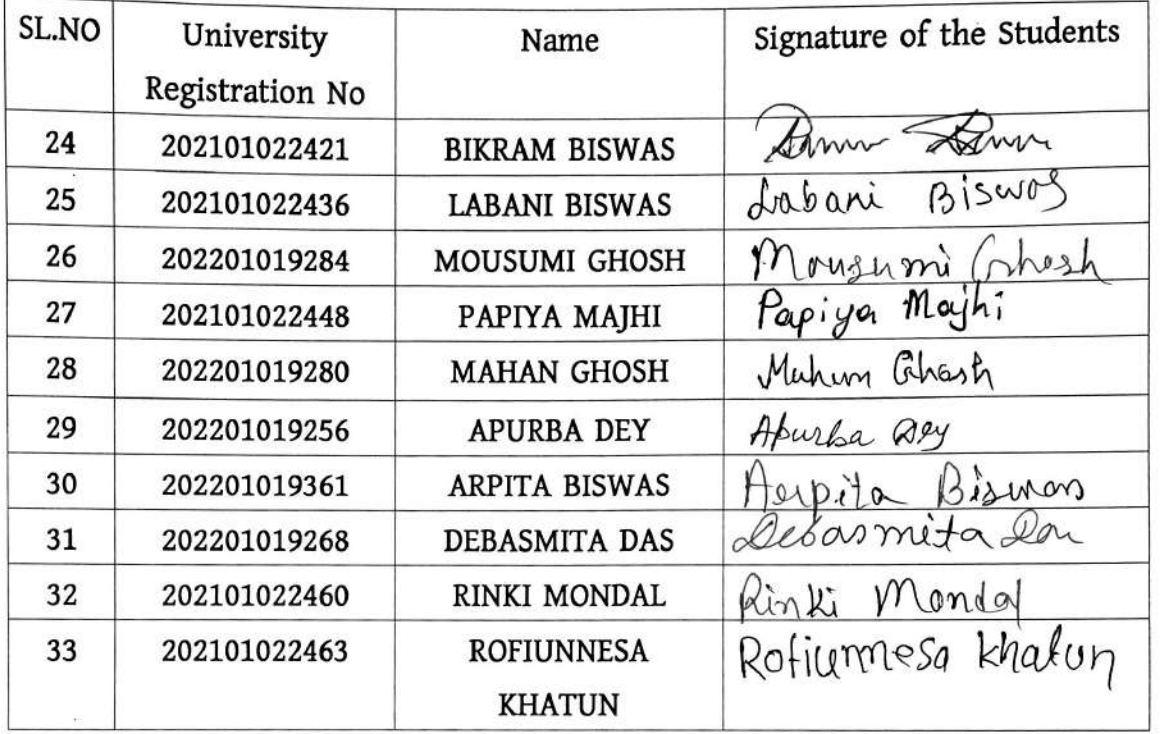 SL.NO University Registration No Name Signature of the Students
24 202101022421 BIKRAM BISWAS
25 202101022436 LABANI BISWAS Labani Biswas
26 202201019284 MOUSUMI GHOSH Mousumi Ghosh
27 202101022448 PAPIYA MAJHI Papiya Majhi
28 202201019280 MAHAN GHOSH Ghosh
29 202201019256 APURBA DEY Apurba Dey
30 202201019361 ARPITA BISWAS Arpita Biswas
31 202201019268 DEBASMITA DAS Debasmita Das
32 202101022460 RINKI MONDAL Rinki Mondal
33 202101022463 ROFIUNNESA KHATUN Rofiunnesa Khatun